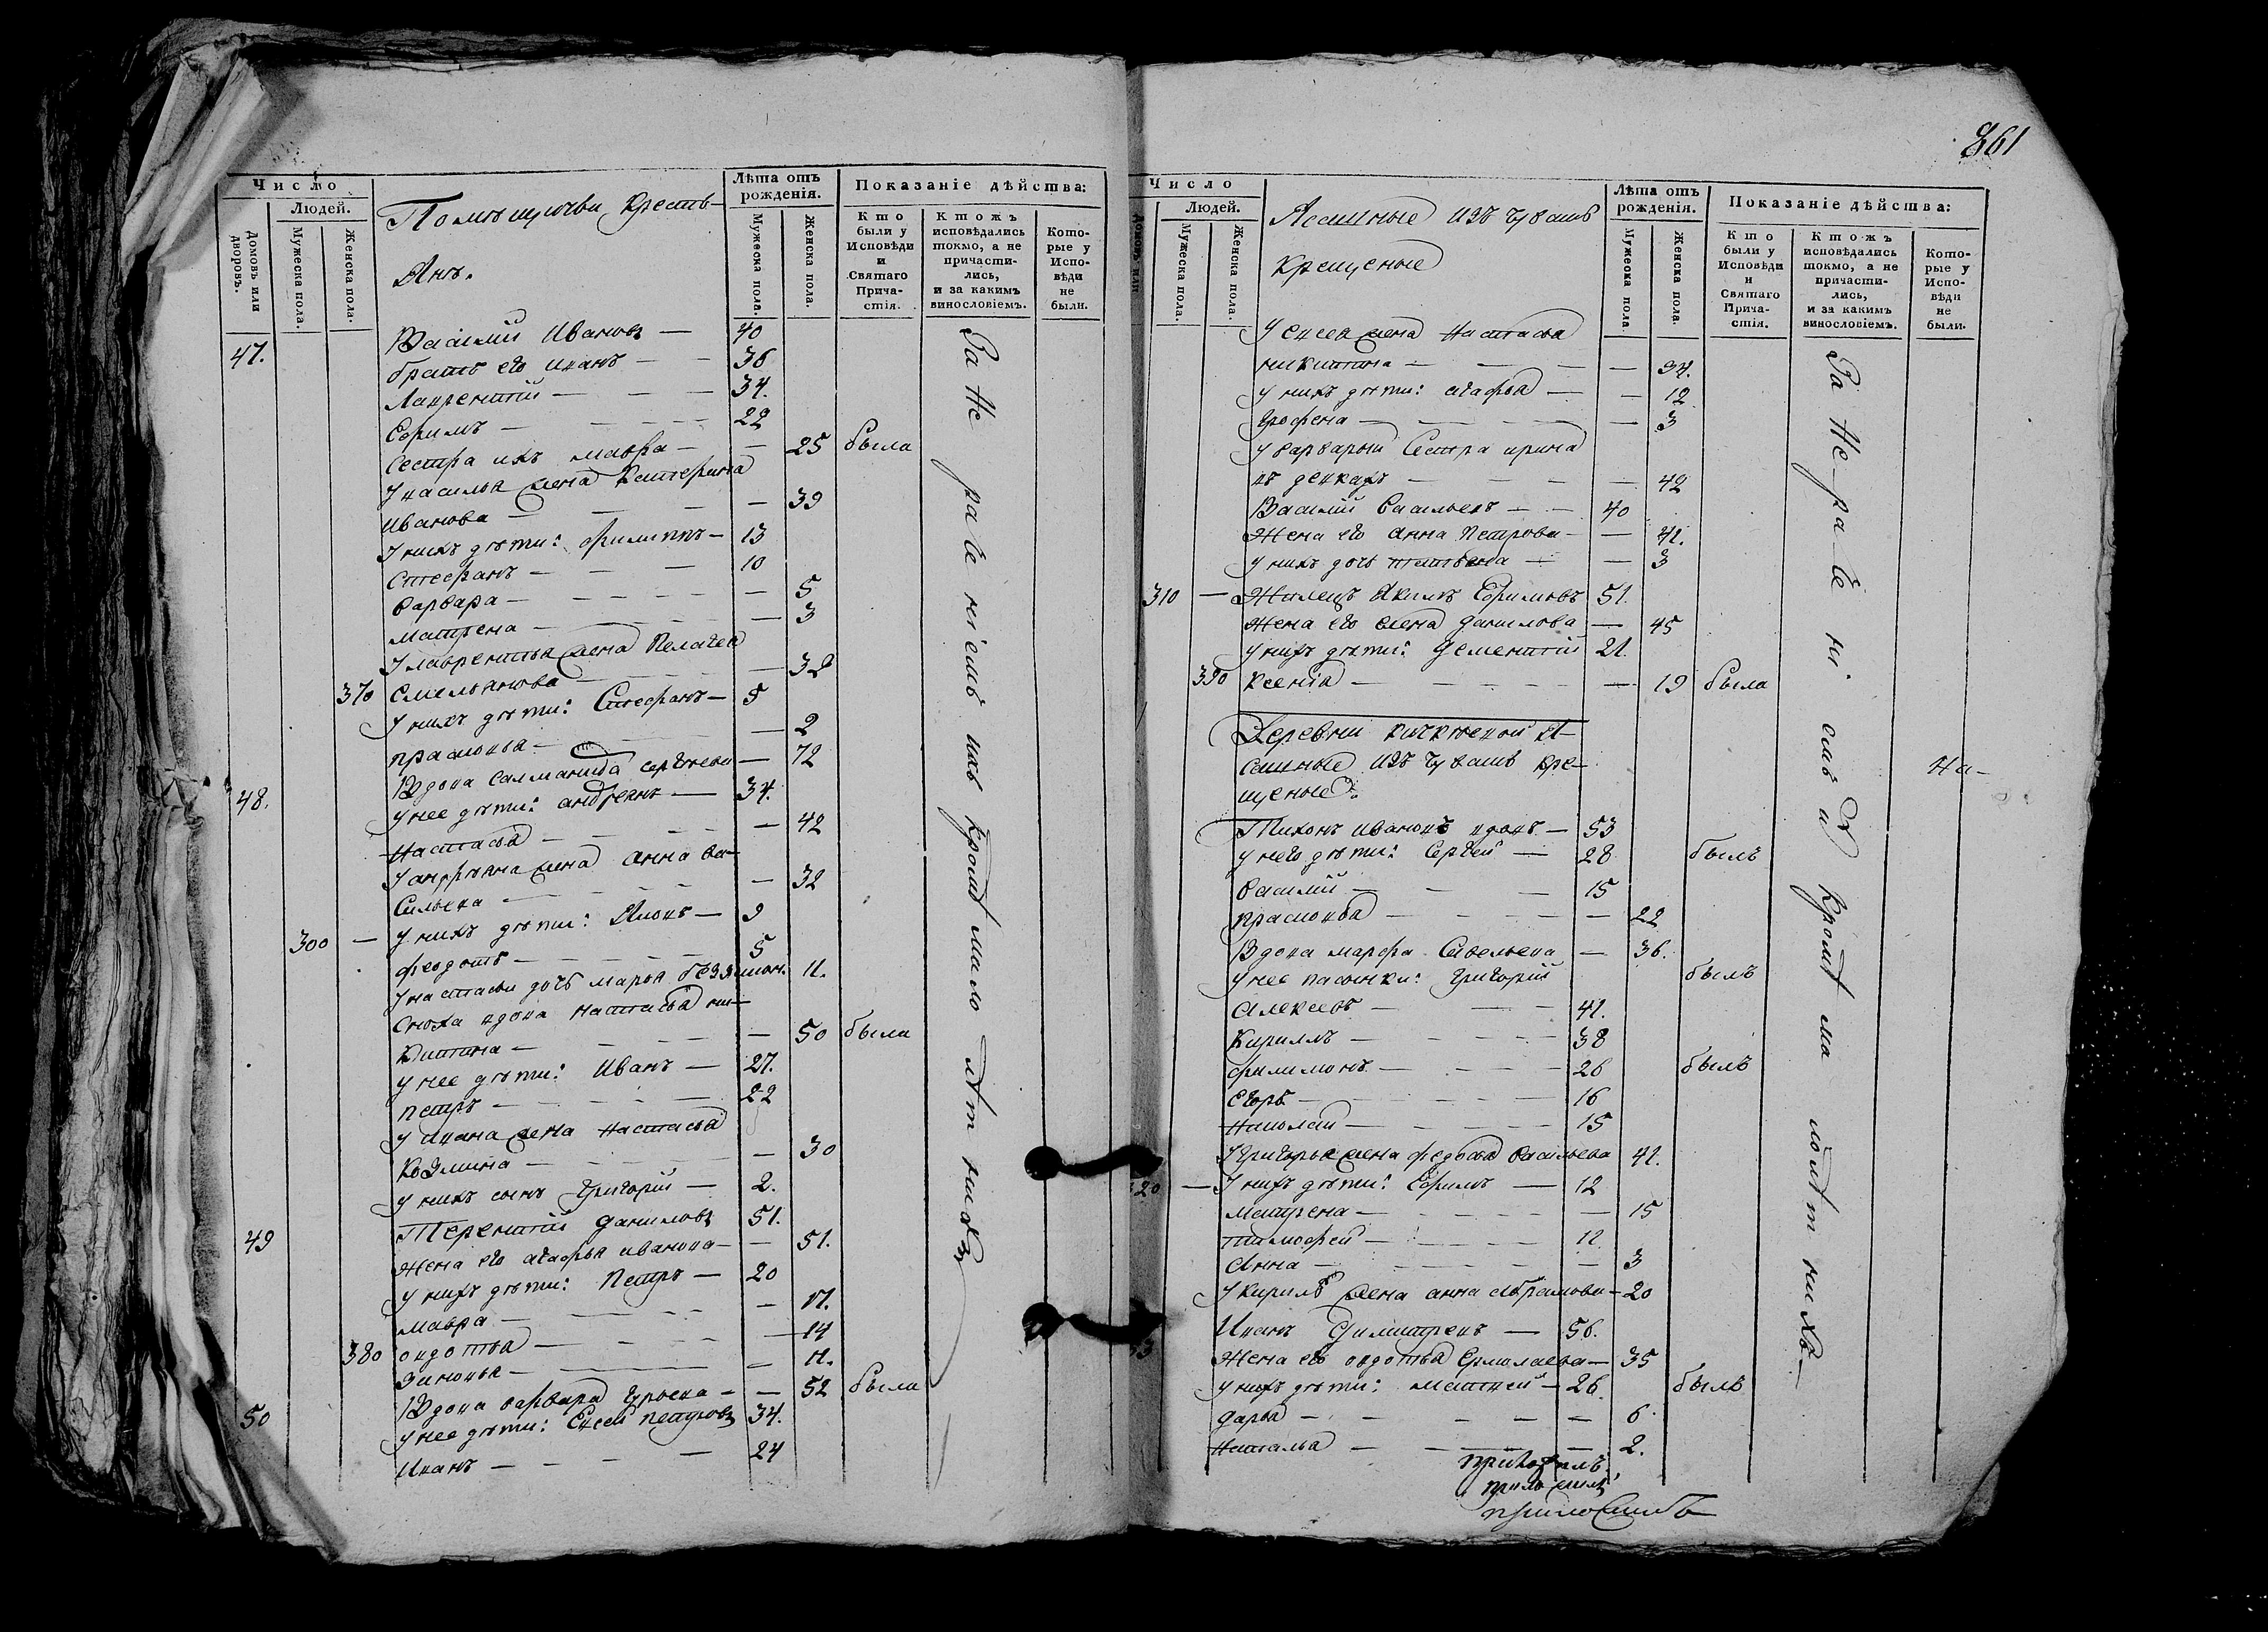 Число
Людей.
Домовъ или дворовъ.
Мужеска пола.
Женска пола.
Помѣщичьи Кресть-
янъ.
Лѣта отъ рожденія.
Мужеска пола.
Женска пола.
Показаніе дѣйства:
Кто были у Исповѣди и Святаго Прича-стія.
Ктожъ исповѣдались токмо, а не причасти-лись, и за какимъ винословіемъ.
Кото-рые у Испо-вѣди не были.
47. Василий Ивановъ — 40
братъ его Иванъ — 36
Лаврентий — 34.
Ефимъ — 22
Сестра ихъ мавра — 25 была
У василья жена Катерина
Иванова — 39
У нихъ дѣти: филиппъ — 13
Стефанъ — 10
варвара — 5
матрена — 3
У лаврентья жена Пелагея
370 Емельянова — 32
У нихъ дѣти: Стефанъ — 5
прасковья — 2
48. Вдова Саломанида Сергѣева — 72
у нее дѣти: андреянъ — 34.
Настасья — 42
У андреяна жена анна Ва-
сильева — 32
300 — У нихъ дѣти: Яковъ — 9
федотъ — 5
У настасьи дочь марья 11.
Сноха вдова настасья ни-
китина — 50 была
у нее дѣти: Иванъ — 27.
петръ — 22
у Ивана жена настасья
Козмина — 30
у нихъ сынъ Григорий — 2.
49 Терентий даниловъ 51.
жена его агафья иванова — 51.
у нихъ дѣти: Петръ — 20
мавра — 17.
380 овдотья — 14
Зиновья — 11.
50 Вдова варвара Гурьева — 52 была
у нее дѣти: Евсей петровъ 34.
Иванъ — 24
За не ра де ніемъ ихъ кромѣ мало лѣт нихъ
861
Число
Людей.
Домовъ или
Мужеска пола.
Женска пола.
Ясашные изъ Чувашъ
Крещеные
Лѣта отъ рожденія.
Мужеска пола
Женска пола.
Показаніе дѣйства:
Кто были у Исповѣди и Святаго Прича-стія.
Ктожъ исповѣдались токмо, а не причасти-лись, и за какимъ винословіемъ.
Кото-рые у Испо-вѣди не были.
У Евсея жена Настасья
никитина — 34.
у нихъ дѣти: агафья — 12
Ерофена — 3
У варвары Сестра ирина
въ девкахъ — 42
Василий Васильевъ — 40
Жена его анна Петрова — 41.
У нихъ дочь татьяна — 3
310 — Жилецъ Якимъ Ефимовъ 51.
Жена его елена данилова — 45
У нихъ дѣти: дементий 21.
390 Ксенія — 19 была
Деревни Я-
сашные изъ Чувашъ кре-
щеные.
Тихонъ Ивановъ вдовъ — 53
у него дѣти: Сергей — 28 былъ
василий — 15
прасковья — 22
Вдова марфа Савельева — 36.
У нее пасынки: Григорий былъ
Алексеевъ — 41.
Кириллъ — 38
филимонъ — 26 былъ
Егоръ — 16
Николай — 15
У Григорья жена федосья васильева 41.
20 — У нихъ дѣти: Ефимъ — 12
Матрена — 15
тимофей — 12
Анна — 3
У кирилы жена анна Абрамова — 20
53 Иванъ Димитревъ — 56.
Жена его овдотья Ермолаева — 35
У нихъ дѣти: матвей — 26 былъ
дарья — 6
Наталья — 2.
За не ра де ні емъ и кромѣ ма лолѣт нихъ
На-
приложилъ